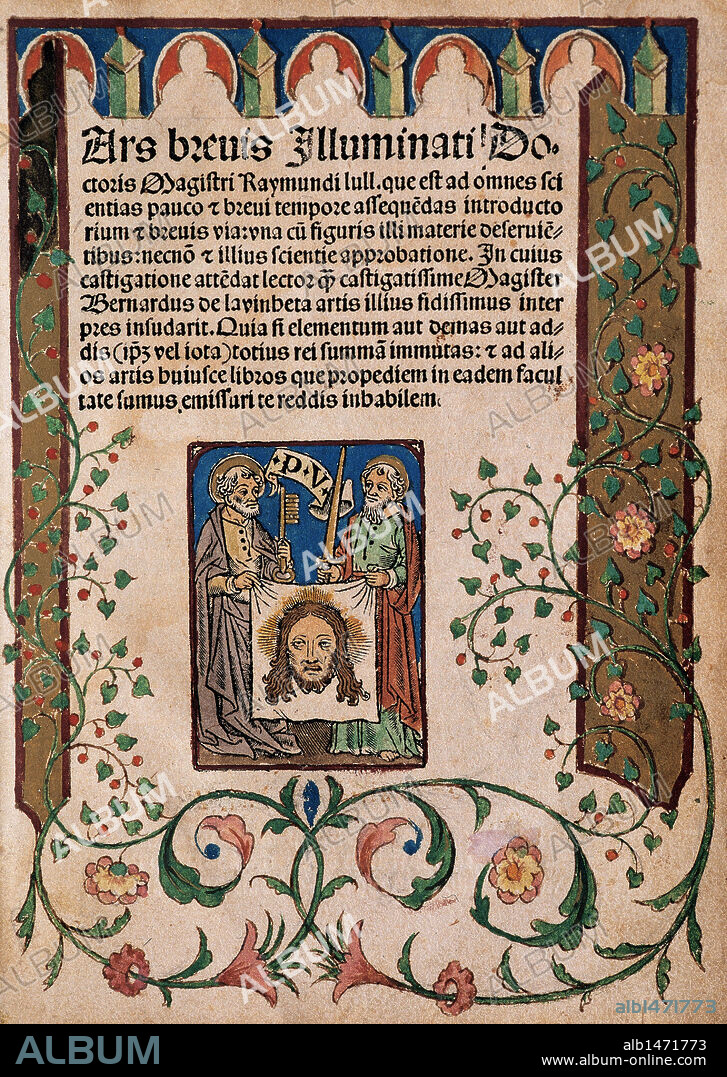 Ars brevis Illuminati Do⸗
ctoris Magistri Raymundi lull. que est ad omnes sci
entias pauco ⁊ brevi tempore assequēdas introducto
rium ⁊ brevis via: vna cū figuris illi materie deserviē⸗
tibus: necnō ⁊ illius scientie approbatione. In cuius
castigatione attēdat lector ꝙ̄ castigatissime Magister
Bernardus de lavinheta artis illius fidissimus inter
pres insudarit. Quia si elementum aut demas aut ad⸗
dis (ipꝫ vel iota) totius rei summā immutas: ⁊ ad ali⸗
os artis huiusce libros que propediem in eadem facul
tate sumus emissuri te reddis inhabilem.
P.V.
ALBUM
alb1471773
ALBUM
alb1471773
www.album-online.com